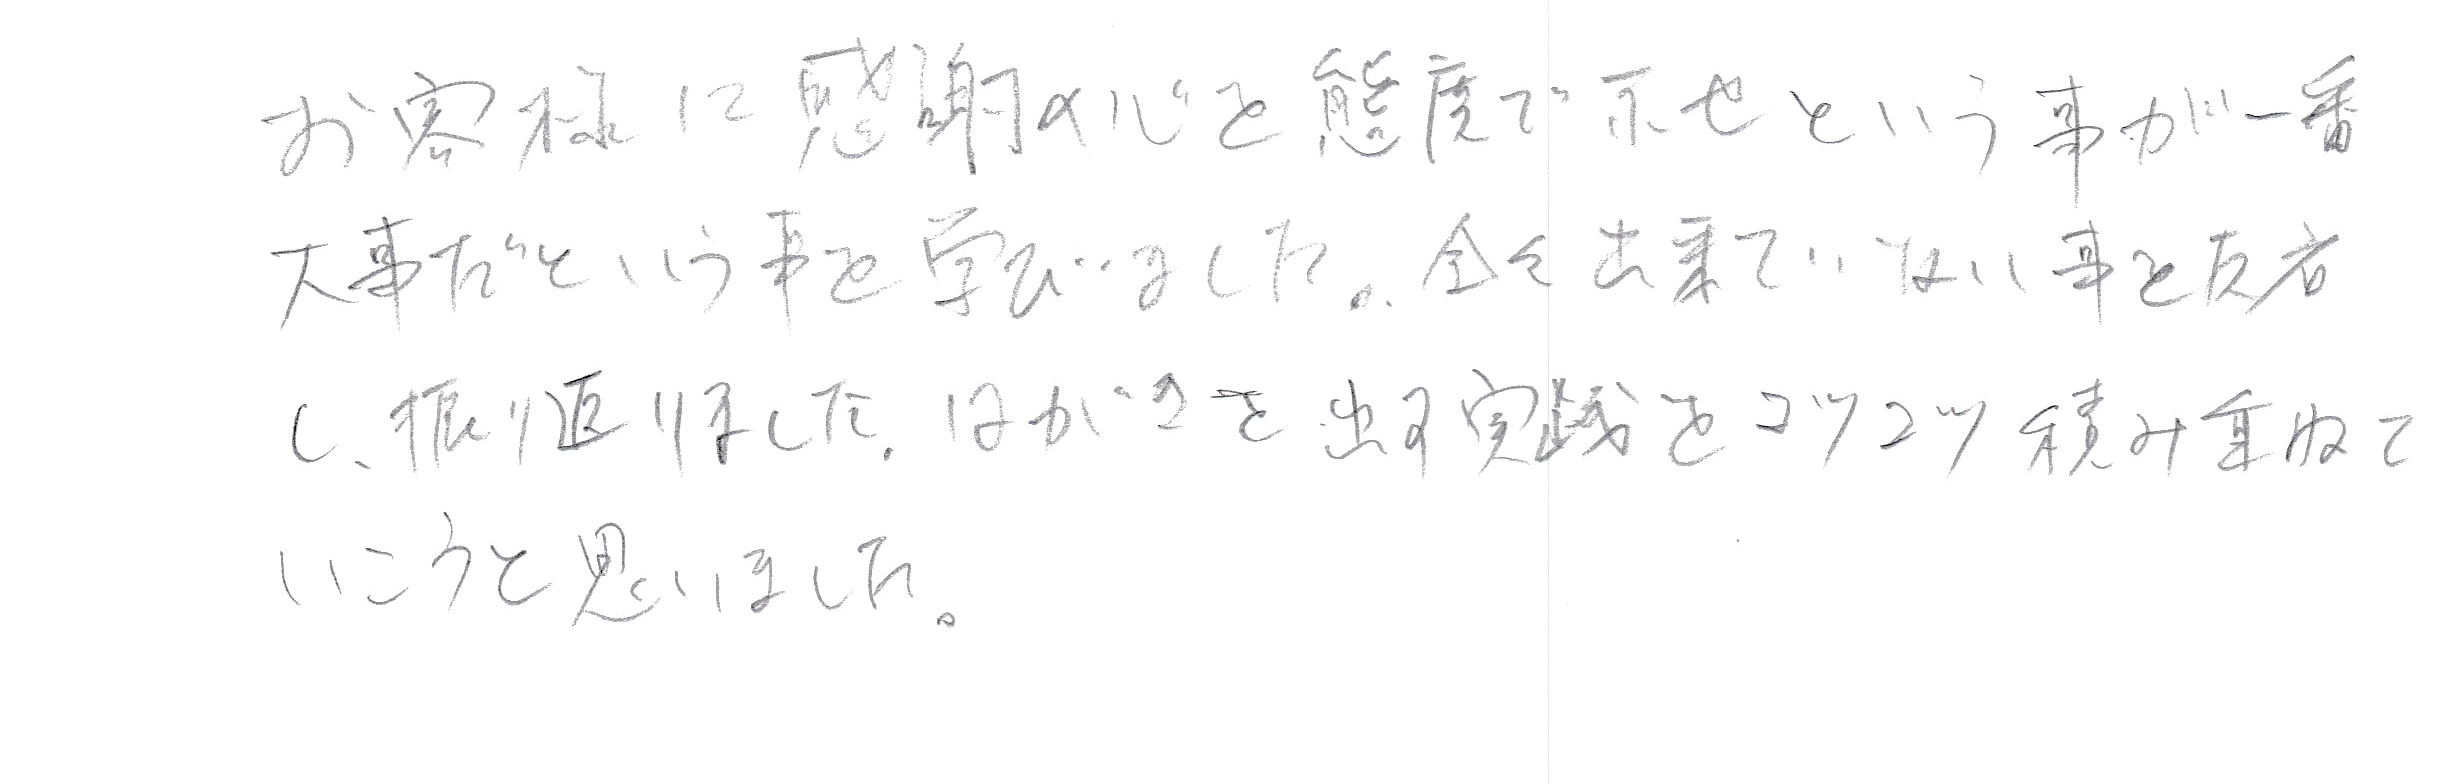 お客様に感謝の心を態度で示せという事が一番
大事だという事を学びました。全く出来ていない事を反省
し、振り返りました。はがきを出す実践をコツコツ積み重ねて
いこうと思いました。